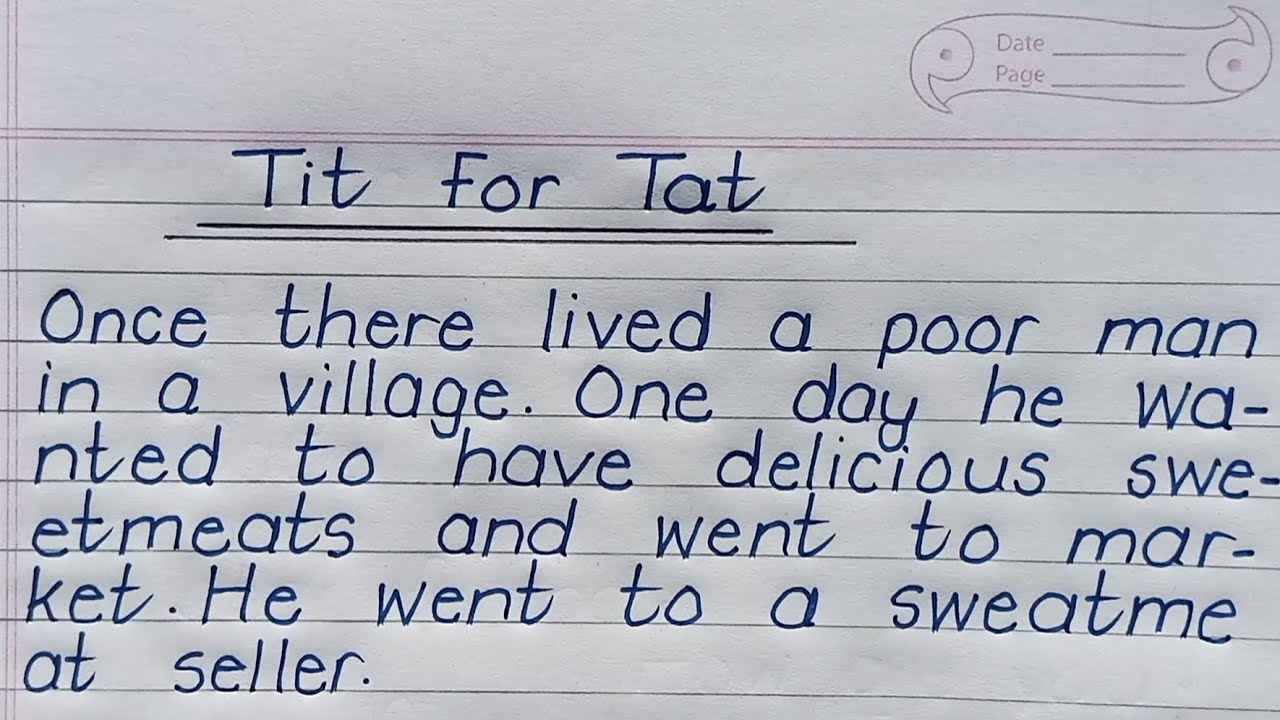 Date
Page
Tit for Tat
Once there lived a poor man
in a village. One day he wa-
nted to have delicious swe-
etmeats and went to mar-
ket. He went to a sweatme
at seller.